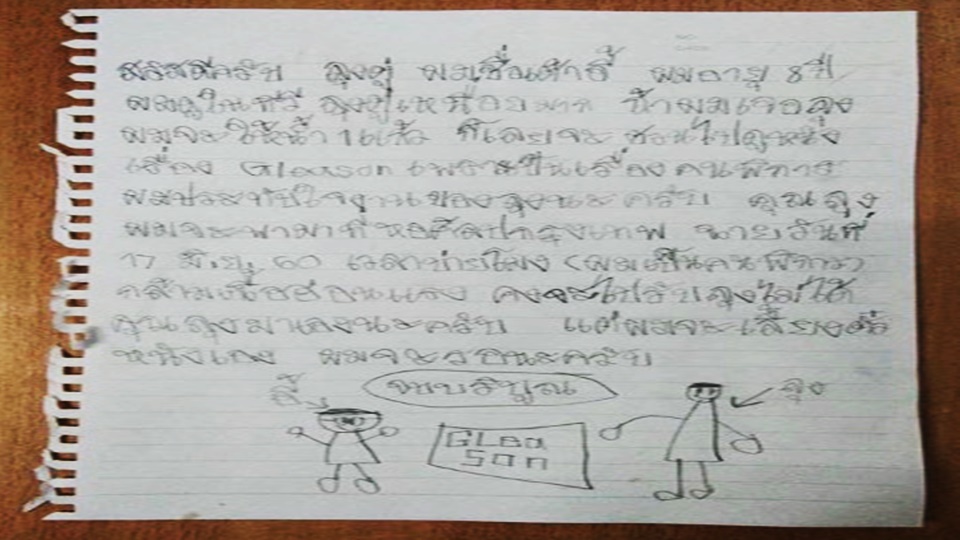 สวัสดีครับ ลุงตู่ ผมชื่อเต้าอี้ ผมอายุ 8 ปี
ผมดูในทีวี ลุงตู่เหนื่อยมาก ถ้าผมเจอลุง
ผมจะให้น้ำ 1 แก้ว ก็เลยจะชวนไปดูหนัง
เรื่อง Gleason เพราะเป็นเรื่องคนพิการ
ผมประทับใจงานของลุงนะครับ คุณลุง
ผมจะพามาที่หอศิลป์กรุงเทพ บ่ายวันที่
17 มิ.ย. 60 เวลาบ่ายโมง (ผมเป็นคนพิการ)
กล้ามเนื้ออ่อนแรง คงจะไปรับลุงไม่ได้
คุณลุงมาเองนะครับ แต่ผมจะเลี้ยงตั๋ว
หนังเอง ผมจะรอนะครับ
จบบริบูรณ์
อี้
ลุง
GLea
son